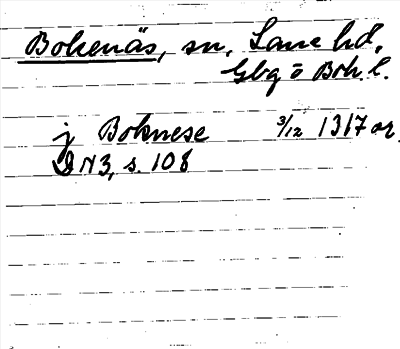 Bokenäs, sn, Lane hd,
Gbg o Boh. l.
j Boknese 3/12 1317 or.
DN 3, s. 108